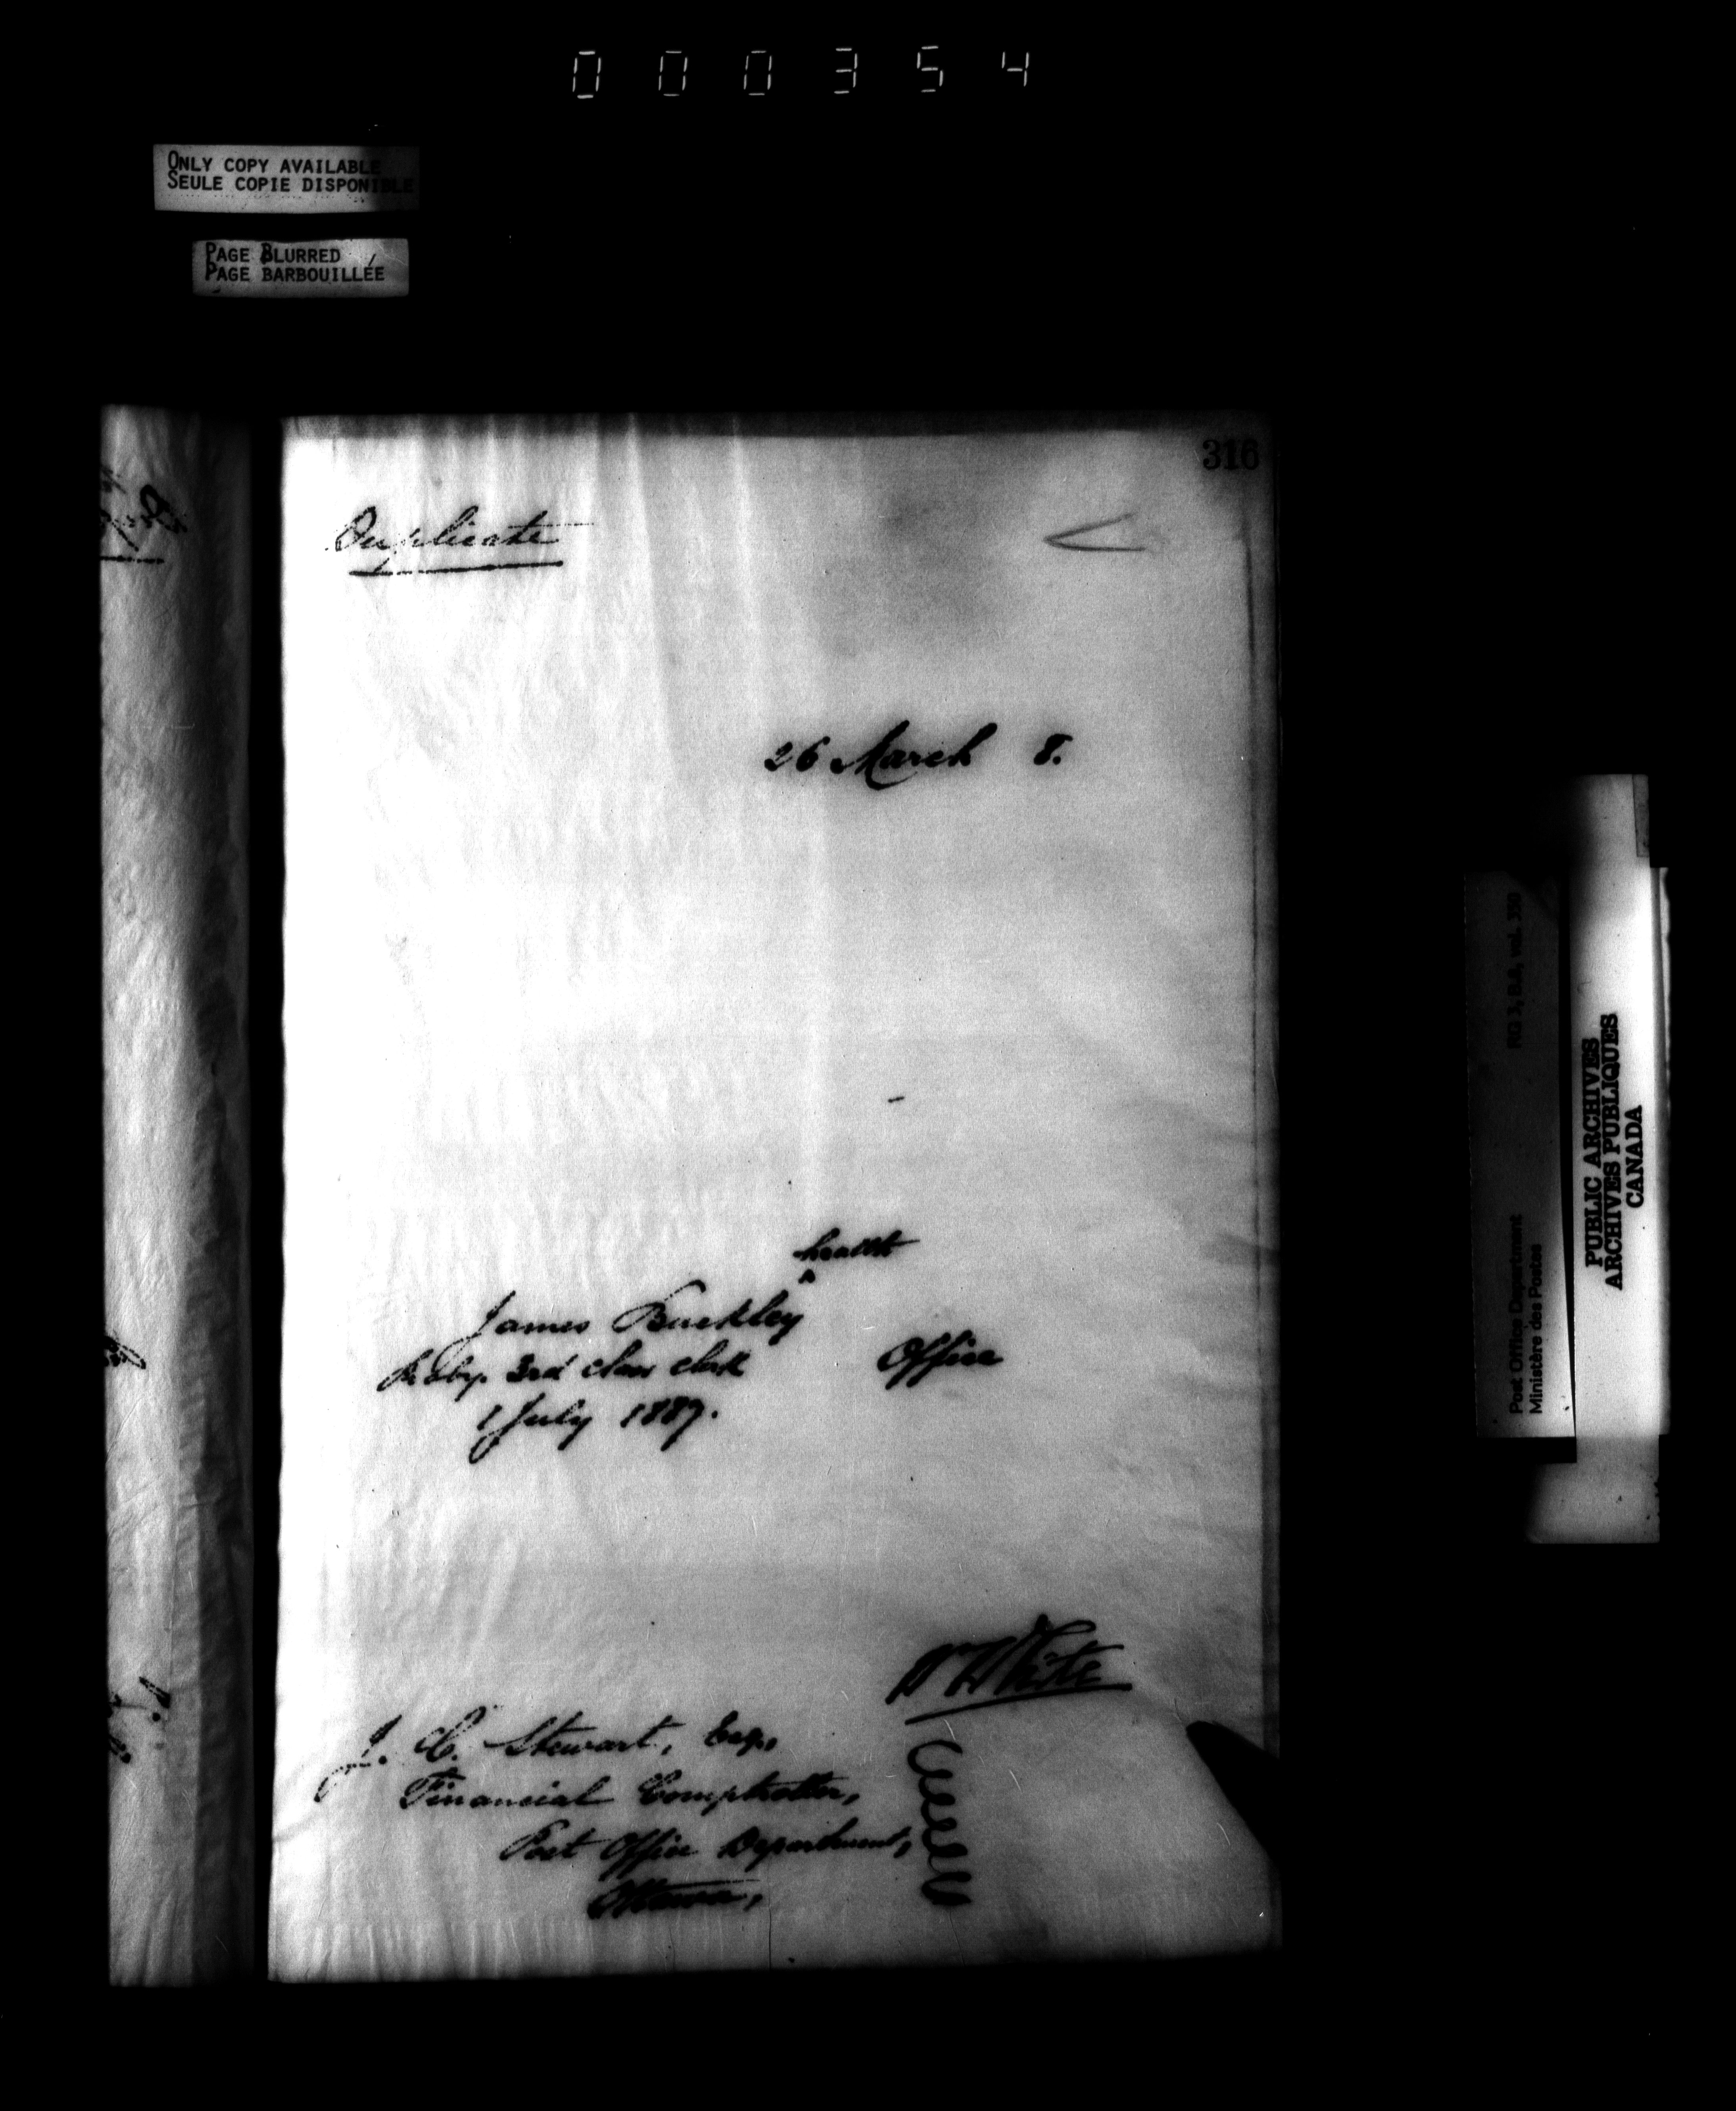 000354
ONLY COPY AVAILABLE
SEULE COPIE DISPONIBLE
PAGE BLURRED
PAGE BARBOUILLÉE
316
Duplicate
26 March 8.
health
James Buckley
3rd class clerk
Office
1 July 1887.
White
J. C. Stewart, Esq.,
Financial Comptroller,
Post Office Department,
Ottawa,
Post Office Department RG 3, D.4, vol. 350
Ministère des Postes
PUBLIC ARCHIVES
ARCHIVES PUBLIQUES
CANADA